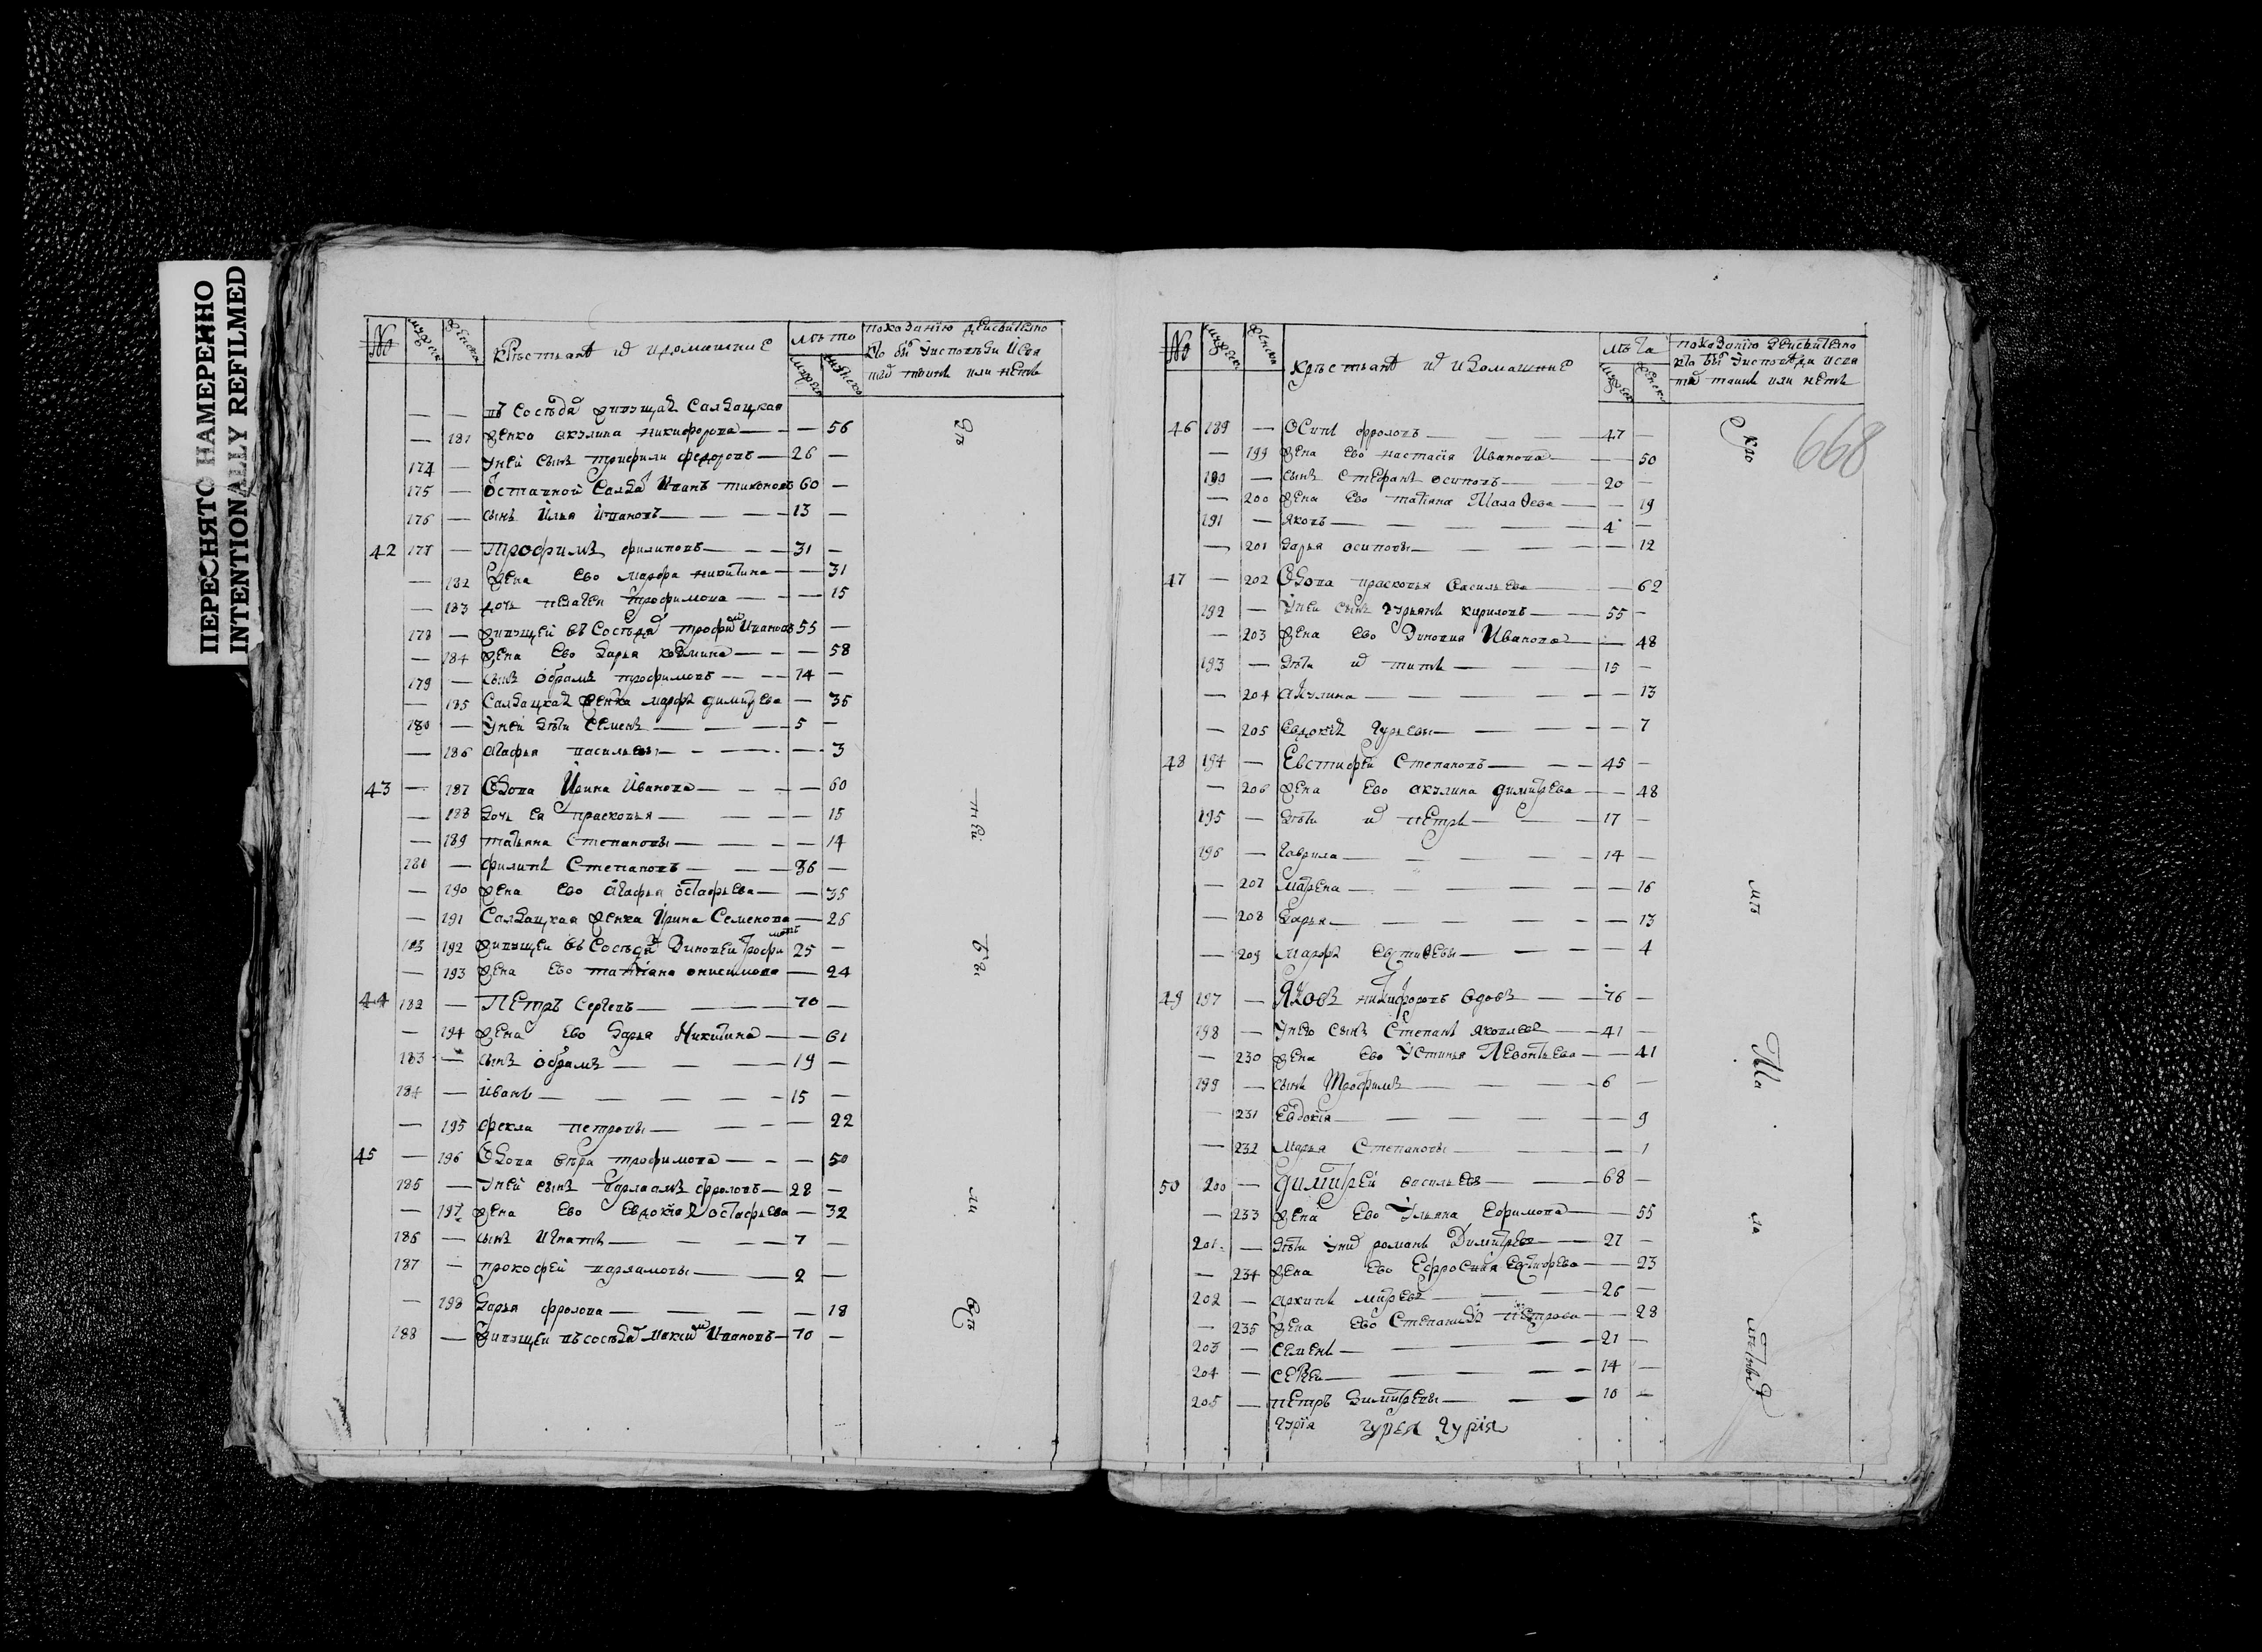 ПЕРЕСНЯТО НАМЕРЕННО
INTENTIONALLY REFILMED
№ крестьянѣ и ихъ домашние лѣто
показанию действително
кто былъ у исповѣди и свя
тыхъ таинъ или нетъ
— — въ соседахъ живущая салдацкая
— 181 женка акулина никифорова — — 56
174 — у ней сынъ трифили федоровъ — 26 —
175 — оставной салдатъ иванъ тихоновъ 60 —
176 — сынъ илья ивановъ — 13 —
42 177 — трофимъ филиповъ — 31 —
— 182 жена ево марфа никитина — — 31
— 183 дочь пелагея трофимова — — 15
178 — живущей въ соседяхъ трофимъ ивановъ 55 —
— 184 жена ево дарья козмина — — 58
179 — сынъ обрамъ трофимовъ — 14 —
— 185 салдацкая женка марфа димитрева — 35
180 — у ней дѣти семенъ — 5 —
— 186 агафья васильевы — — 3
43 — 187 вдова ирина иванова — — 60
— 188 дочь ея прасковья — — 15
— 189 татьяна степановы — — 14
181 — филипъ степановъ — 36 —
— 190 жена ево агафья остафьева — — 35
— 191 салдацкая женка ирина семенова — 26
185 192 живущеи въ соседяхъ зиновеи трофимовъ 25 —
— 193 жена ево татиана онисимова — 24
44 182 — петръ сергеевъ — 70 —
— 194 жена ево дарья никитина — — 61
183 — сынъ обрамъ — 19 —
184 — иванъ — 15 —
— 195 фекла петровы — — 22
45 — 196 вдова вѣра трофимова — — 50
185 — у ней сынъ варлаамъ фроловъ — 28 —
— 197 жена ево евдокия остафьева — 32
186 — сынъ игнатъ — 7 —
187 — прокофей варламовы — 2 —
— 198 дарья фролова — — 18
188 — живущеи въ соседахъ максимъ ивановъ — 70 —
668
№ крестьянѣ и их домашние лѣта
показанию действително
кто былъ у исповѣди и свя
тыхъ таинъ или нетъ
46 189 — осипъ фроловъ — 47 —
— 199 жена ево настасия иванова — — 50
190 — сынъ стефанъ осиповъ — 20 —
— 200 жена ево татиана — — 19
191 — яковъ — 4 —
— 201 дарья осиповы — — 12
47 — 202 вдова прасковья васильева — — 62
192 — у ней сынъ гурьянъ кириловъ — 55 —
— 203 жена ево зиновия иванова — — 48
193 — дѣти ихъ титъ — 15 —
— 204 акулина — — 13
— 205 евдокия гурьевы — — 7
48 194 — евстифей степановъ — 45 —
— 206 жена ево акулина димитрева — — 48
195 — дѣти ихъ петръ — 17 —
196 — гаврила — 14 —
— 207 матрена — — 16
— 208 дарья — — 13
— 209 марфа евстифевы — — 4
49 197 — яковъ никифоровъ вдовъ — 76 —
198 — у него сынъ степанъ яковлевъ — 41 —
— 230 жена ево устинья левонтьева — — 41
199 — сынъ трофимъ — 6 —
— 231 евдокия — — 9
— 232 марья степановы — — 1
50 200 — димитрей васильевъ — 68 —
— 233 жена ево ульяна ефимова — — 55
201 — дѣти у них романъ димитревъ — 27 —
— 234 жена ево ефросиния евстифева — — 23
202 — архипъ — 26 —
— 235 жена ево степанида петрова — — 28
203 — семенъ — 21 —
204 — сергеи — 14 —
205 — петръ димитревы — 10 —
гурия гурья гурия